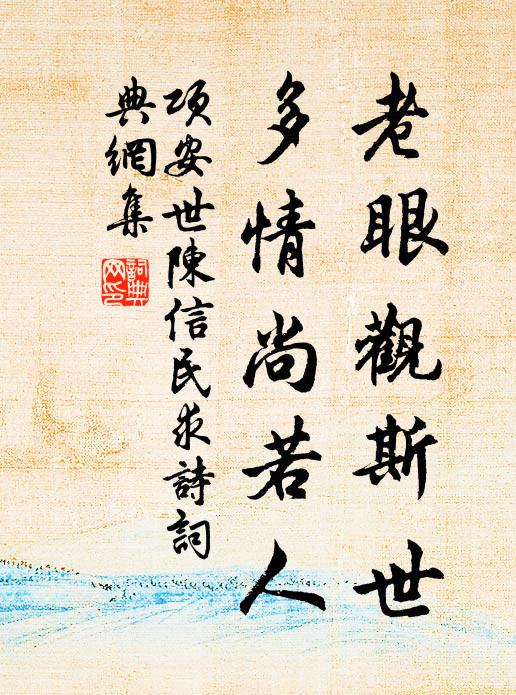 老眼觀斯世
多情尚若人
項安世陳信民求詩詞
典網集
詞典
網印